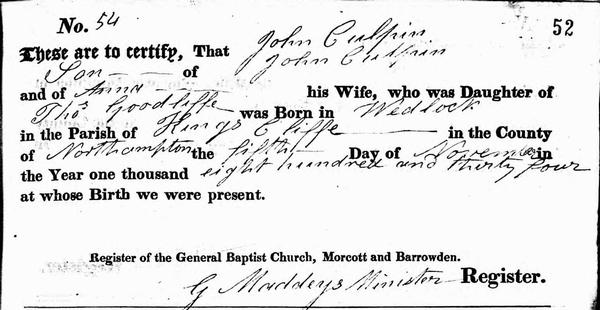 No. 54
52
John Culpin
These are to certify, That John Culpin
Son of
and of Anna his Wife, who was Daughter of
Thos Goodliffe was Born in Wedlock
in the Parish of Kings Cliffe in the County
of Northampton the fifth Day of November in
the Year one thousand eight hundred and thirty four
at whose Birth we were present.
Register of the General Baptist Church, Morcott and Barrowden.
G Maddeys Minister Register.